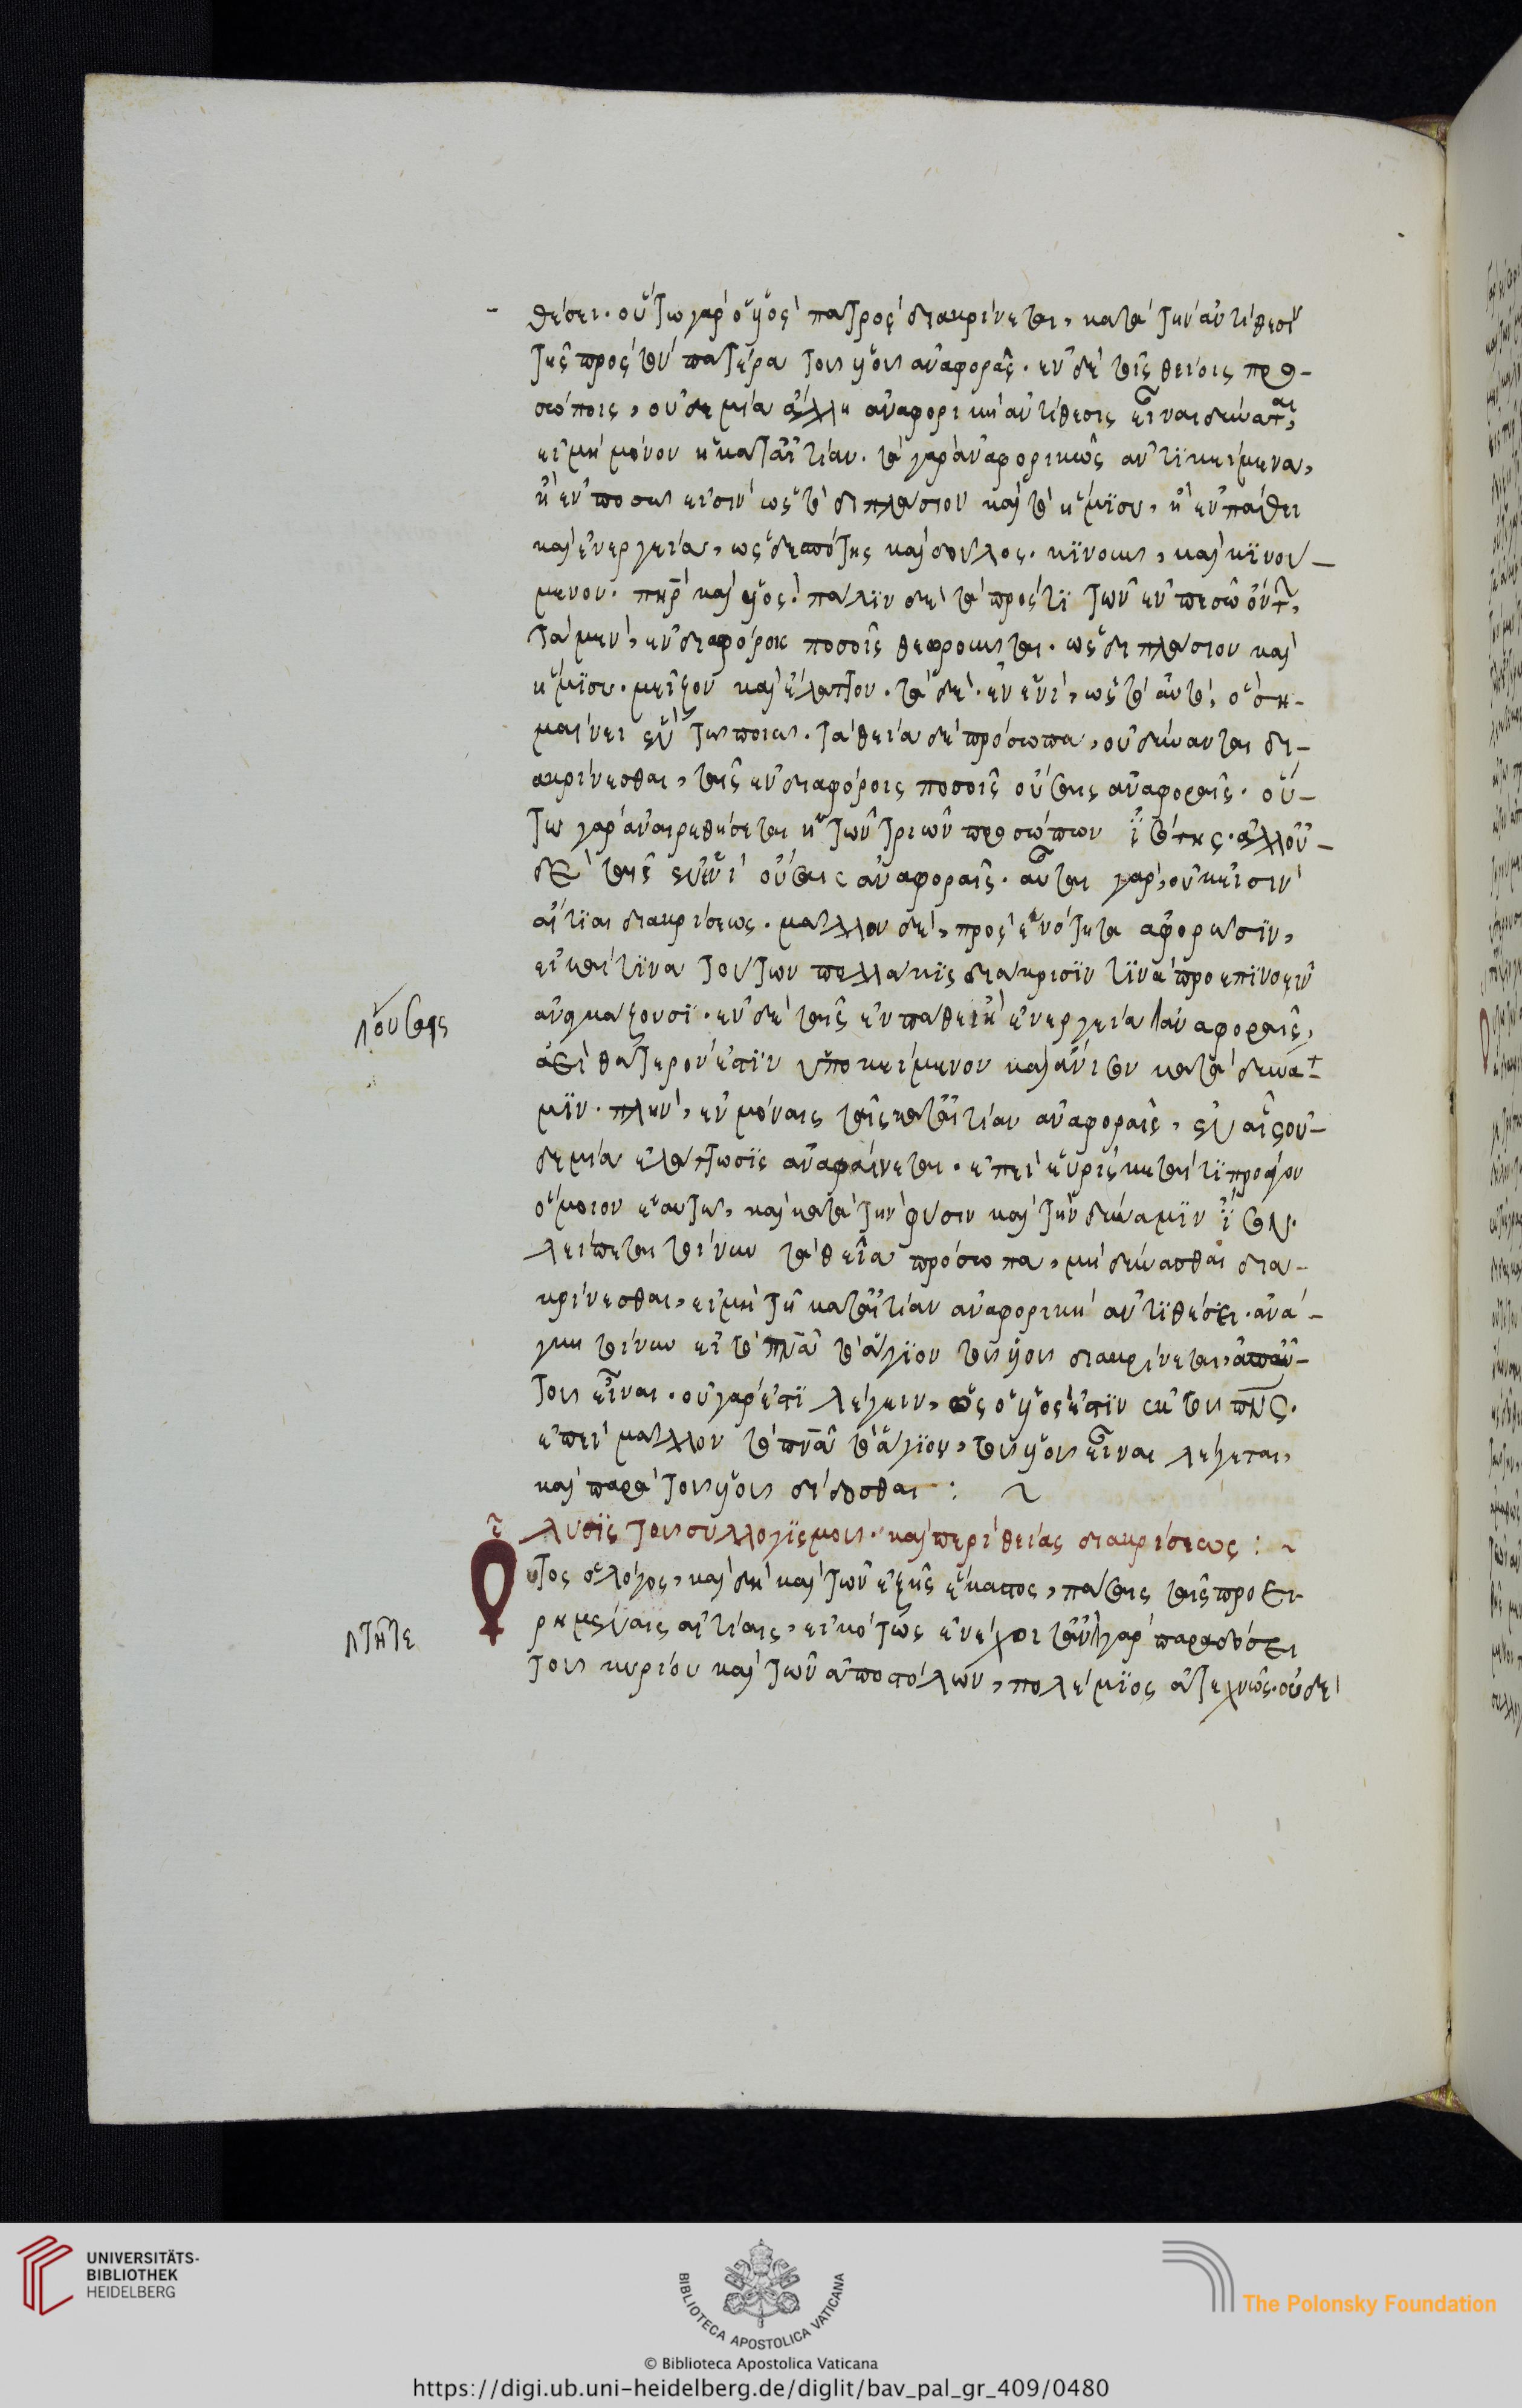 θέσει. οὕτω γὰρ ὁ υἱὸς πατρὸς διακρίνεται, κατὰ τὴν ἀντίθεσιν
τῆς πρὸς τὸν πατέρα τοῦ υἱοῦ ἀναφορᾶς. ἐν δὲ τοῖς θείοις προ-
σώποις, οὐδεμία ἄλλη ἀναφορικὴ ἀντίθεσις εἶναι δύναται,
εἰ μὴ μόνον ἡ κατ' αἰτίαν. τὰ γὰρ ἀναφορικῶς ἀντικείμενα,
ἢ ἐν ποσῷ εἰσὶν ὡς τὸ διπλάσιον καὶ τὸ ἥμισυ, ἢ ἐν πάθει
καὶ ἐνεργεία, ὡς δεσπότης καὶ δοῦλος. κινοῦν, καὶ κινού-
μενον. πηρ καὶ υἱός. πάλιν δὲ τὰ πρός τι τῶν ἐν ποσῷ ὄντ,
τὰ μὲν, ἐν διαφόροις ποσοῖς θεωροῦνται. ὡς διπλάσιον καὶ
ἥμισυ. μεῖζον καὶ ἔλαττον. τὰ δὲ. ἐν ἑνὶ, ὡς τὸ αὐτὸ, ὃ ση-
μαίνει ἓν τῷ ποιῷ. τὰ θεῖα δὲ πρόσωπα, οὐ δύνανται δι-
ακρίνεσθαι, ταῖς ἐν διαφόροις ποσοῖς οὔσαις ἀναφοραῖς. οὕ-
τω γὰρ ἀναιρεθήσεται ἡ τῶν τριῶν προσώπων ἰσότης. ἀλλ' οὐ-
δὲ ταῖς ἐν ἑνὶ οὔσαις ἀναφοραῖς. αὗται γὰρ, οὔκ εἰσιν
αἴτιαι διακρίσεως. μᾶλλον δὲ, πρὸς ἑνότητα ἀφορῶσιν,
εἰ καί τινα τούτων πολλάκις διάκρισιν τινὰ προεπινοεῖν
ἀναγκάζουσι. ἐν δὲ ταῖς ἐν πάθει ἢ ἐνεργεία ἀναφοραῖς,
λ οὔσαις
ἀεὶ θάτερόν ἐστιν ὑποκείμενον καὶ ἄνισον κατὰ δύνα-
μιν. πλὴν, ἐν μόναις ταῖς κατ' αἰτίαν ἀναφοραῖς, ἐν αἷς οὐ-
δεμία ἐλάττωσις ἀναφαίνεται. ἐπεὶ εὑρίσκεταί τι προφέρον
ὅμοιον ἑαυτῷ, καὶ κατὰ τὴν φύσιν καὶ τὴν δύναμιν ἴσον.
λείπεται τοίνυν τὰ θεῖα πρόσωπα, μὴ δύνασθαι δια-
κρίνεσθαι, εἰ μὴ τῇ κατ' αἰτίαν ἀναφορικῇ ἀντιθέσει. ἀνά-
γκη τοίνυν εἰ τὸ πνα τὸ ἅγιον τοῦ υἱοῦ διακρίνεται, ἀπ' αὐ-
τοῦ εἶναι. οὐ γάρ ἐστι λέγειν, ὡς ὁ υἱός ἐστιν ἐκ τοῦ πνς.
ἐπεὶ μᾶλλον τὸ πνα τὸ ἅγιον, τοῦ υἱοῦ εἶναι λέγεται,
καὶ παρὰ τοῦ υἱοῦ δίδοσθαι :
Λύσις τοῦ συλλογισμοῦ. καὶ περὶ θείας διακρίσεως :
Οὗτος ὁ λόγος, καὶ δὴ καὶ τῶν ἑξῆς ἕκαστος, πάσαις ταῖς προει-
ρημέναις αἰτίαις, εἰκότως ἐνέχοιτ' ἂν γὰρ παραδόσει
λ τῇ τε
τοῦ κυρίου καὶ τῶν ἀποστόλων, πολέμιος ἀτεχνῶς. οὐδὲ
UNIVERSITÄTS-
BIBLIOTHEK
HEIDELBERG
BIBLIOTECA APOSTOLICA VATICANA
The Polonsky Foundation
© Biblioteca Apostolica Vaticana
https://digi.ub.uni-heidelberg.de/diglit/bav_pal_gr_409/0480